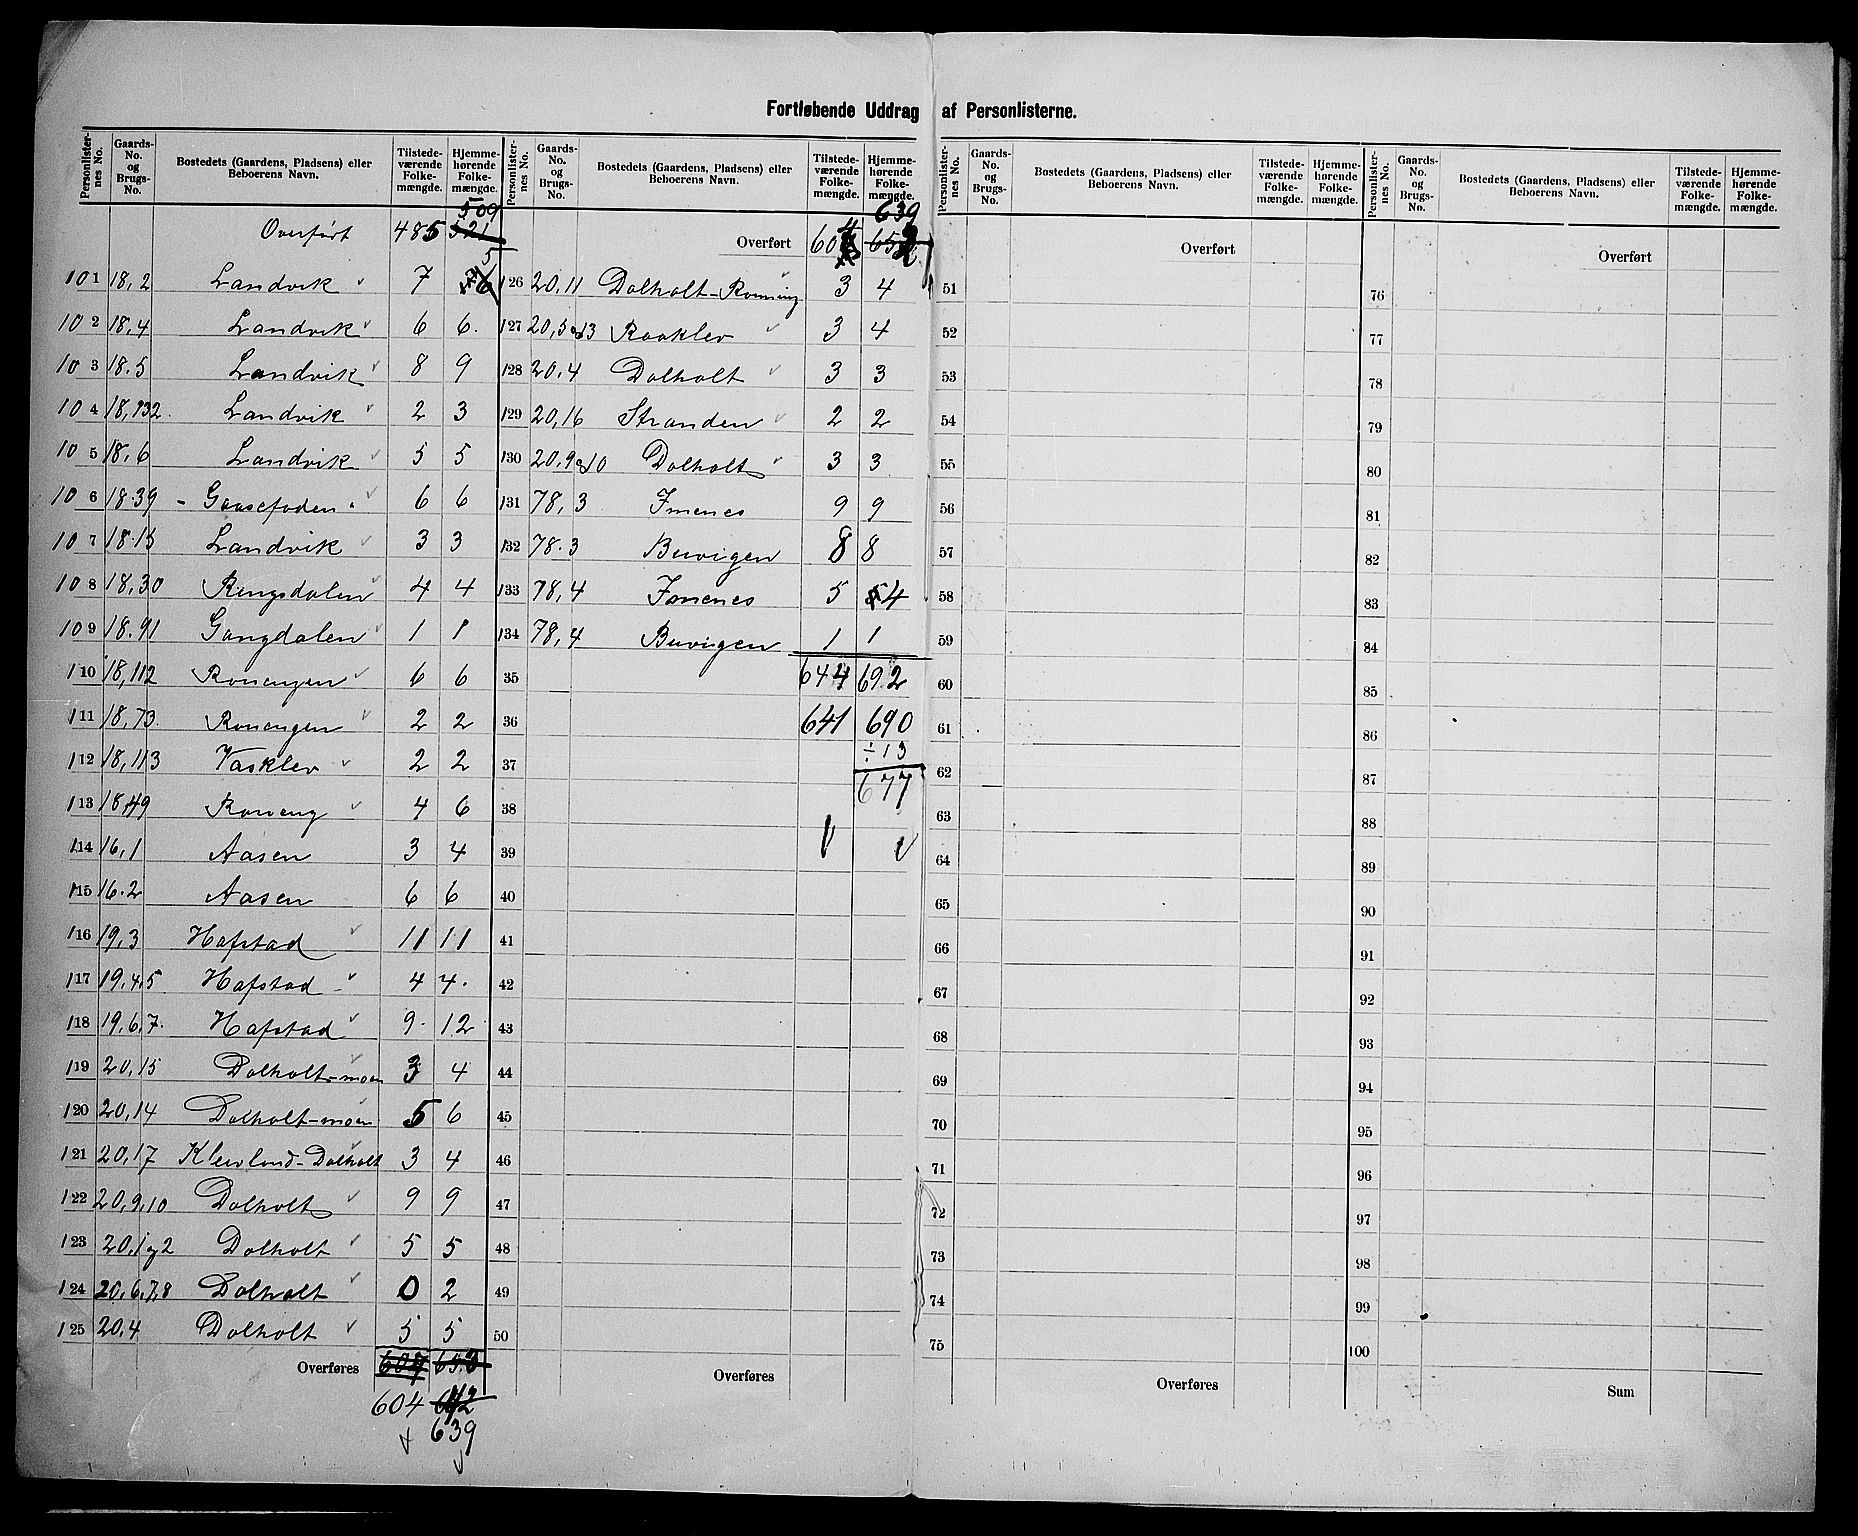 Fortløbende Uddrag af Personlisterne.
Personlisternes No. Gaards-No. og Brugs-No. Bostedets (Gaardens, Pladsens) eller Beboerens Navn. Tilstedeværende Folkemængde. Hjemmehørende Folkemængde.
Overført 485 521 509
101 18,2 Landvik 7 5
102 18,4 Landvik 6 6.
103 18.5 Landvik 8 9
104 18,132. Landvik 2 3
105 18,6 Landvik 5 5
106 18.39 - Gaasefoden. 6 6
107 18.15 Landvik 3 3
108 18,30 Ringsdalen 4 4
109 18.91 Gangdalen 1 1
110 18,112 Rønengen 6 6
111 18,73. Rønengen 2 2
112 18,113 Vasklev 2 2
113 18,49 Røneng 4 6
114 16,1 Aasen 3 4
115 16.2 Aasen 6 6
116 19,3 Hafstad 11 11
117 19,4,5 Hafstad 4 4.
118 19,6,7. Hafstad 9. 12
119 20,15 Dolholt-moen 3 4
120 20,14 Dolholt-moen 5 6
121 20,17 Klevland-Dolholt 3 4
122 20,9,10 Dolholt 9 9
123 20,1 og 2 Dolholt 5 5
124 20,6,7,8 Dolholt 0 2
125 20,4 Dolholt 5 5
Overføres 607 653
604 642
639
Personlisternes No. Gaards-No. og Brugs-No. Bostedets (Gaardens, Pladsens) eller Beboerens Navn. Tilstedeværende Folkemængde. Hjemmehørende Folkemængde.
639
Overført 604 652
126 20,11 Dolholt-Rønning 3 4
127 20,5 og 13 Raaklev 3 4
128 20,4 Dolholt 3 3
129 20,16 Stranden 2 2
130 20,9 og 10 Dolholt 3 3
131 78,3 Imenes 9 9
132 78.3 Buvigen 8 8
133 78,4 Imenes 5 4
134 78,4 Buvigen 1 1
35 644 692
36 641 690
÷13
37 677
38
39
40
41
42
43
44
45
46
47
48
49
50
Overføres
Personlisternes No. Gaards-No. og Brugs-No. Bostedets (Gaardens, Pladsens) eller Beboerens Navn. Tilstedeværende Folkemængde. Hjemmehørende Folkemængde.
Overført
51
52
53
54
55
56
57
58
59
60
61
62
63
64
65
66
67
68
69
70
71
72
73
74
75
Overføres
Personlisternes No. Gaards-No. og Brugs-No. Bostedets (Gaardens, Pladsens) eller Beboerens Navn. Tilstedeværende Folkemængde. Hjemmehørende Folkemængde.
Overført
76
77
78
79
80
81
82
83
84
85
86
87
88
89
90
91
92
93
94
95
96
97
98
99
100
Sum